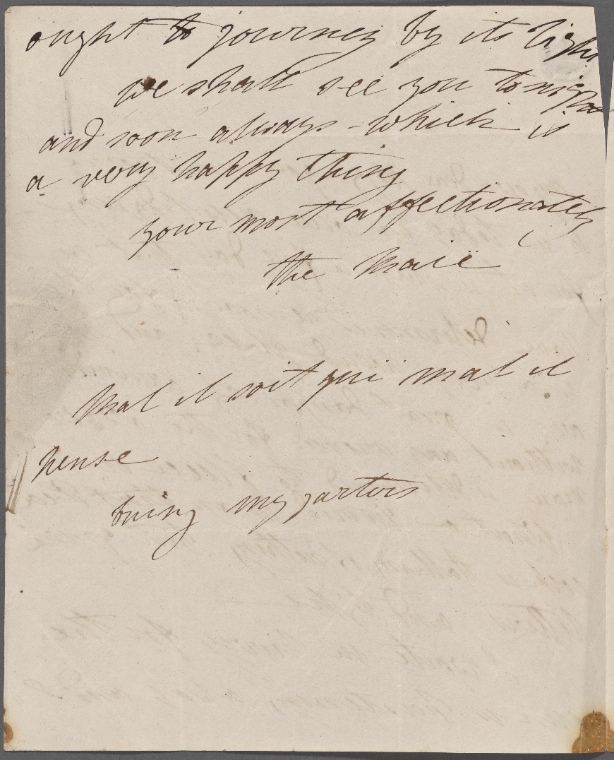 ought to journey by its light
we shall see you tonight
and soon always - which is
a very happy thing
your most affectionately
the Maie
Mal il soit qui mal il
pense
bring my garters